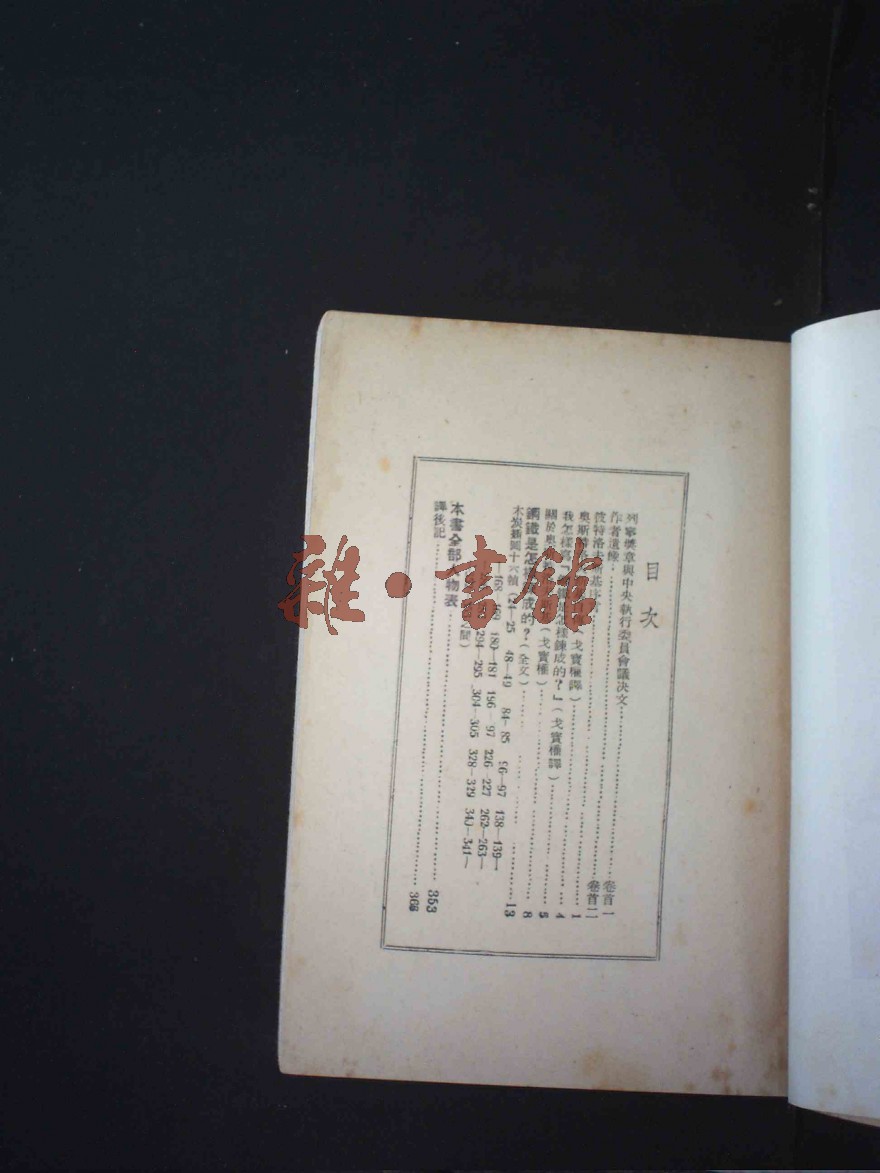 目次
列寧獎章與中央執行委員會議決文……卷首一
作者遺像……卷首二
彼特洛夫斯基序言……1
奧斯特(戈寶權譯)……4
我怎樣寫「鋼鐵是怎樣鍊成的?」(戈寶權譯)……5
關於奧(戈寶權)……8
鋼鐵是怎樣鍊成的?(全文)……13
木炭插圖十六幀(24—25 48—49 84—85 96—97 138—139—
168 169 180—181 196—97 226—227 262—263—
294—295 304—305 328—329 340—341—
之間)
本書全部人物表……353
譯後記……366
雜·書館